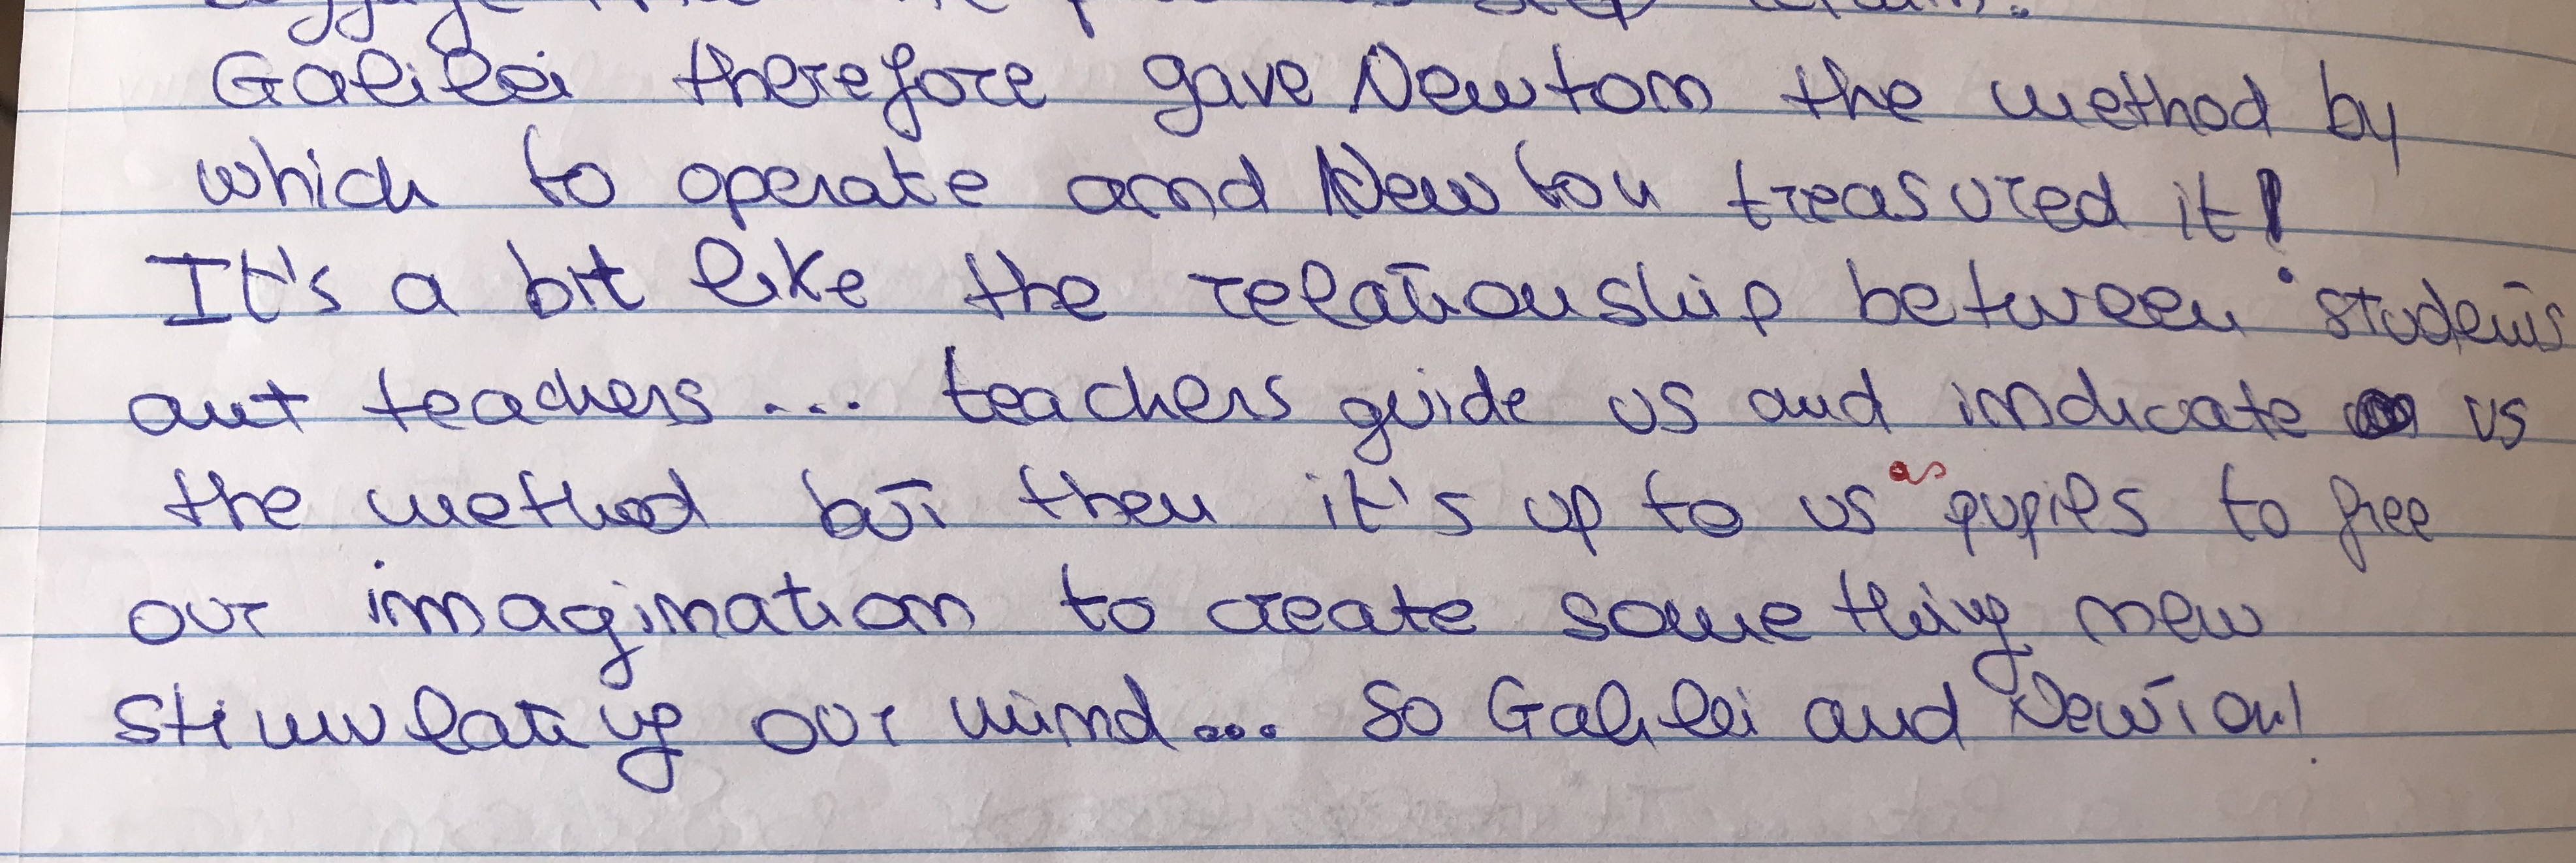 Galilei therefore gave Newton the method by
which to operate and Newton treasured it!
It's a bit like the relationship between students
ant teachers ... teachers guide us and indicate us
the method but then it's up to us as pupils to free
our imagination to create something new
stimulating our mind... So Galilei and Newton!